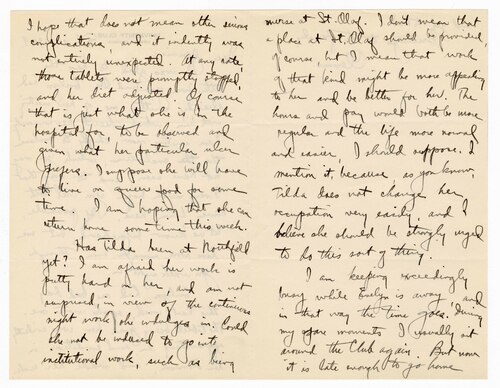 I hope that does not mean other serious
complications, and it evidently was
not entirely unexpected. At any rate
those tablets were promptly stopped,
and her diet adjusted. Of course
that is just what she is in the
hospital for, to be observed and
given what her particular ulcer
prefers. I suppose she will have
to live on queer food for some
time. I am hoping that she can
return home some time this week.
Has Tilda been at Northfield
yet? I am afraid her work is
pretty hard on her, and am not
surprised, in view of the continuous
night work she indulges in. Could
she not be induced to go into
institutional work, such as being
nurse at St. Olaf. I don't mean that
a place at St. Olaf should be provided,
of course, but I mean that work
of that kind might be more appealing
to her and be better for her. The
hours and pay would both be more
regular and the life more normal
and easier, I should suppose. I
mention it, because, as you know,
Tilda does not change her
occupation very easily, and I
believe she should be strongly urged
to do this sort of thing.
I am keeping exceedingly
busy while Evelyn is away and
in that way the time goes. During
my spare moments I usually sit
around the Club again. But now
it is late enough to go home